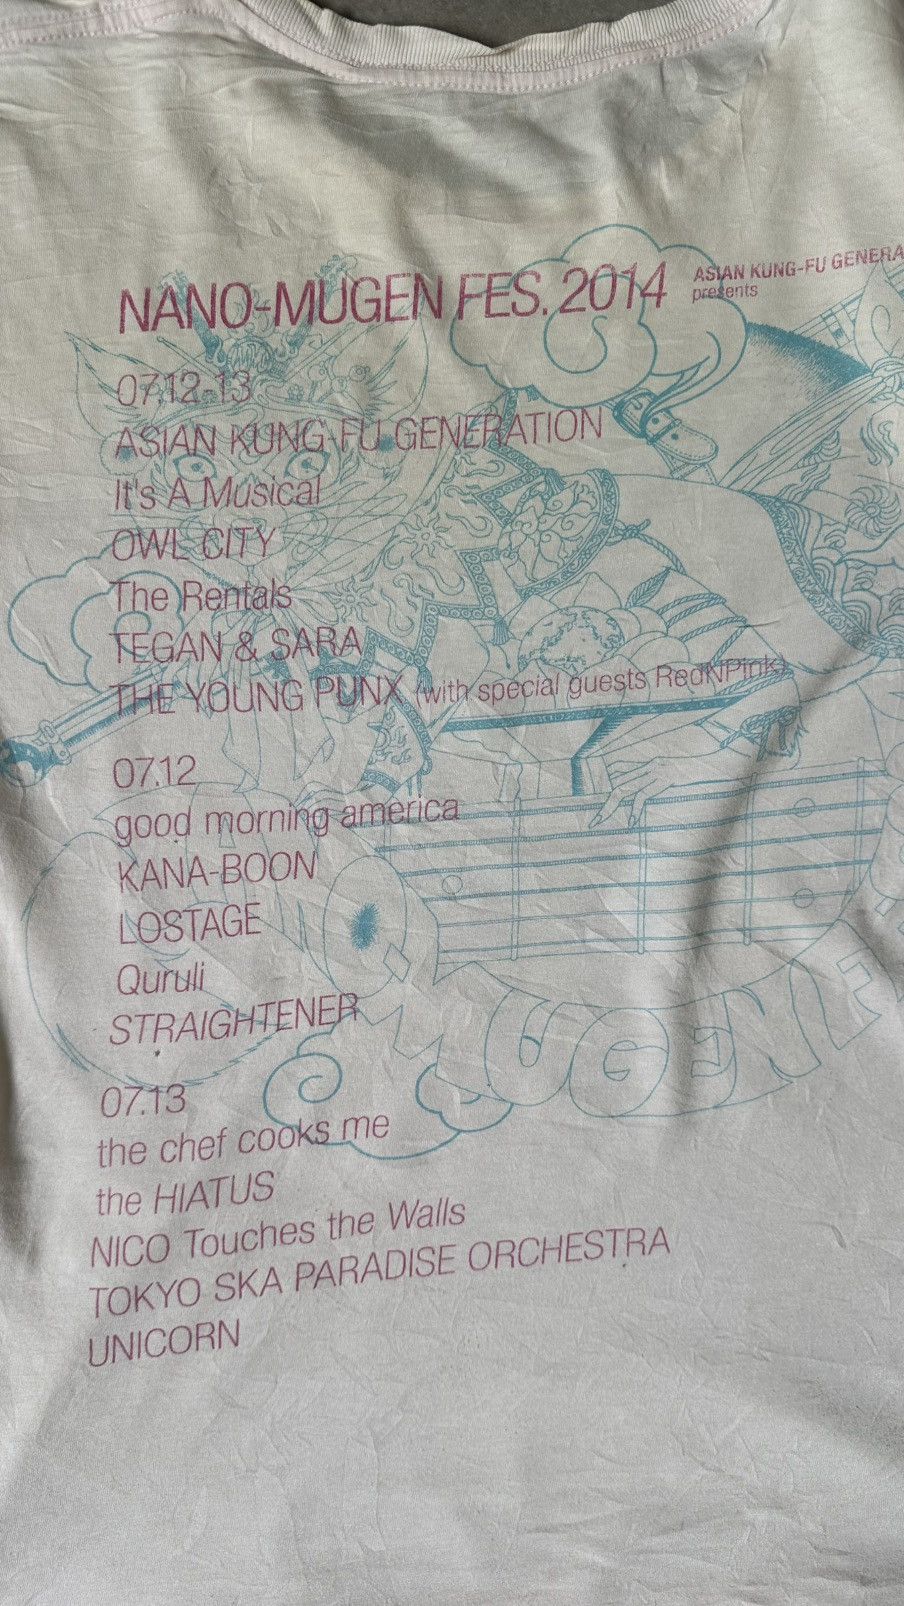 NANO-MUGEN FES. 2014
ASIAN KUNG-FU GENERA
presents
07.12-13
ASIAN KUNG-FU GENERATION
It's A Musical
OWL CITY
The Rentals
TEGAN & SARA
THE YOUNG PUNX (with special guests RedNPink)
07.12
good morning america
KANA-BOON
LOSTAGE
Quruli
STRAIGHTENER
07.13
the chef cooks me
the HIATUS
NICO Touches the Walls
TOKYO SKA PARADISE ORCHESTRA
UNICORN
MUGEN F